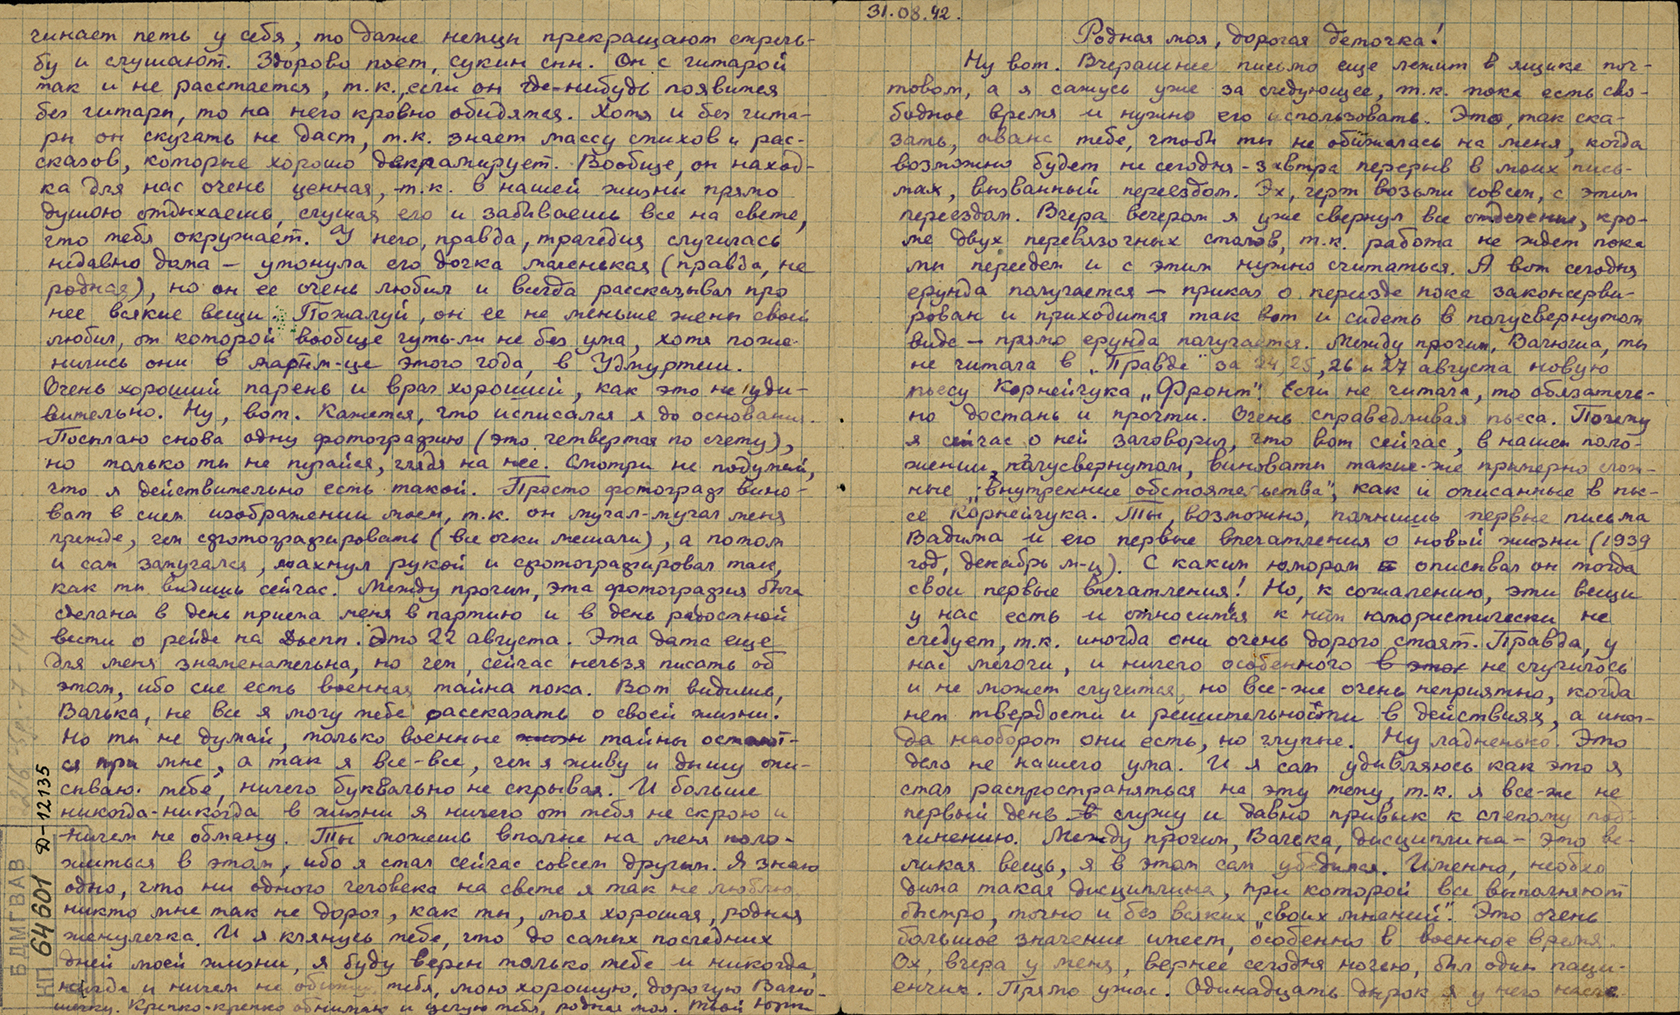 чинает петь у себя, то даже немцы прекращают стрель-
бу и слушают. Здорово поет, сукин сын. Он с гитарой
так и не расстается, т.к. если он где-нибудь появится
без гитары, то на него кровно обидятся. Хотя и без гита-
ры он скучать не даст, т.к. знает массу стихов и рас-
сказов, которые хорошо декламирует. Вообще, он наход-
ка для нас очень ценная, т.к. в нашей жизни прямо
душою отдыхаешь, слушая его и забываешь все на свете,
что тебя окружает. У него, правда, трагедия случилась
недавно дома – утонула его дочка маленькая (правда, не
родная), но он ее очень любил и всегда рассказывал про
нее всякие вещи. Пожалуй, он ее не меньше жены своей
любил, от которой вообще чуть-ли не без ума, хотя поже-
нились они в марте м-це этого года, в Удмуртии.
Очень хороший парень и врач хороший, как это не уди-
вительно. Ну, вот. Кажется, что исписался я до основания.
Посылаю снова одну фотографию (это четвертая по счету),
но только ты не пугайся, глядя на нее. Смотри не подумай,
что я действительно есть такой. Просто фотограф вино-
ват в сием изображении моем, т.к. он мучал-мучал меня
прежде, чем сфотографировать (все очки мешали), а потом
и сам запугался, махнул рукой и сфотографировал так,
как ты видишь сейчас. Между прочим, эта фотография была
сделана в день приема меня в партию и в день радостной
вести о рейде на Дьепп. Это 22 августа. Эта дата еще
для меня знаменательна, но чем, сейчас нельзя писать об
этом, ибо сие есть военная тайна пока. Вот видишь,
Валька, не все я могу тебе рассказать о своей жизни.
Но ты не думай, только военные тайны остают-
ся при мне, а так я все-все, чем я живу и дышу опи-
сываю тебе, ничего буквально не скрывая. И больше
никогда-никогда в жизни я ничего от тебя не скрою и
ничем не обману. Ты можешь вполне на меня поло-
житься в этом, ибо я стал сейчас совсем другим. Я знаю
одно, что ни одного человека на свете я так не люблю
никто мне так не дорог, как ты, моя хорошая, родная
женулечка. И я клянусь тебе, что до самых последних
дней моей жизни, я буду верен только тебе и никогда,
нигде и ничем не обижу тебя, мою хорошую, дорогую Валю-
шечку. Крепко-крепко обнимаю и целую тебя, родная моя. Твой Юрий
БДМГВАВ
НП 64601 Д-12135
31.08.42.
Родная моя, дорогая деточка!
Ну вот. Вчерашнее письмо еще лежит в ящике поч-
товом, а я сажусь уже за следующее, т.к. пока есть сво-
бодное время и нужно его использовать. Это, так ска-
зать, аванс тебе, чтобы ты не обижалась на меня, когда
возможно будет не сегодня-завтра перерыв в моих пись-
мах, вызванный переездом. Эх, черт возьми совсем, с этим
переездом. Вчера вечером я уже свернул все отделение, кро-
ме двух перевязочных столов, т.к. работа не ждет пока
мы переедем и с этим нужно считаться. А вот сегодня
ерунда получается – приказ о переезде пока законсерви-
рован и приходится так вот и сидеть в полусвернутом
виде – прямо ерунда получается. Между прочим, Валюша, ты
не читала в „Правде" за 24, 25, 26 и 27 августа новую
пьесу Корнейчука „Фронт". Если не читала, то обязатель-
но достань и прочти. Очень справедливая пьеса. Почему
я сейчас о ней заговорил, что вот сейчас, в нашем поло-
жении, полусвернутом, виноваты такие-же примерно слож-
ные „внутренние обстоятельства", как и описанные в пье-
се Корнейчука. Ты, возможно, помнишь первые письма
Вадима и его первые впечатления о новой жизни (1939
год, декабрь м-ц). С каким юмором описывал он тогда
свои первые впечатления! Но, к сожалению, эти вещи
у нас есть и относиться к ним юмористически не
следует, т.к. иногда они очень дорого стоят. Правда, у
нас мелочи, и ничего особенного в этом не случилось
и не может случится, но все-же очень неприятно, когда
нет твердости и решительности в действиях, а иног-
да наоборот они есть, но глупые. Ну ладненько. Это
дело не нашего ума. И я сам удивляюсь как это я
стал распространяться на эту тему, т.к. я все-же не
первый день служу и давно привык к слепому под-
чинению. Между прочим, Валька, дисциплина – это ве-
ликая вещь, я в этом сам убедился. Именно, необхо
дима такая дисциплина, при которой все выполняют
быстро, точно и без всяких „своих мнений". Это очень
большое значение имеет, особенно в военное время.
Ох, вчера у меня, вернее сегодня ночью, был один паци-
ентик. Прямо ужас. Одинадцать дырок я у него насчи